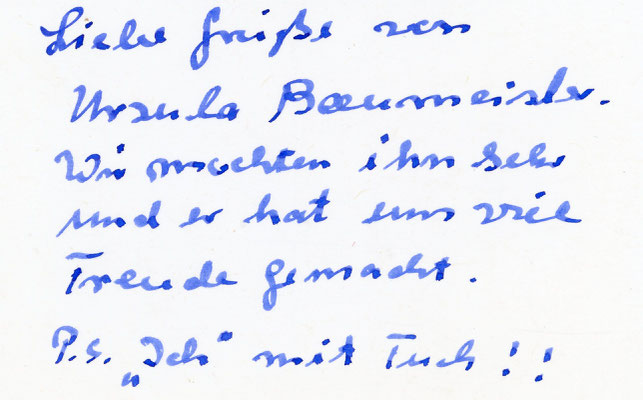 Liebe Grüße von
Ursula Baumeister.
Wir mochten ihn sehr
und er hat uns viel
Freude gemacht.
P.S. „Ich“ mit Tuch!!